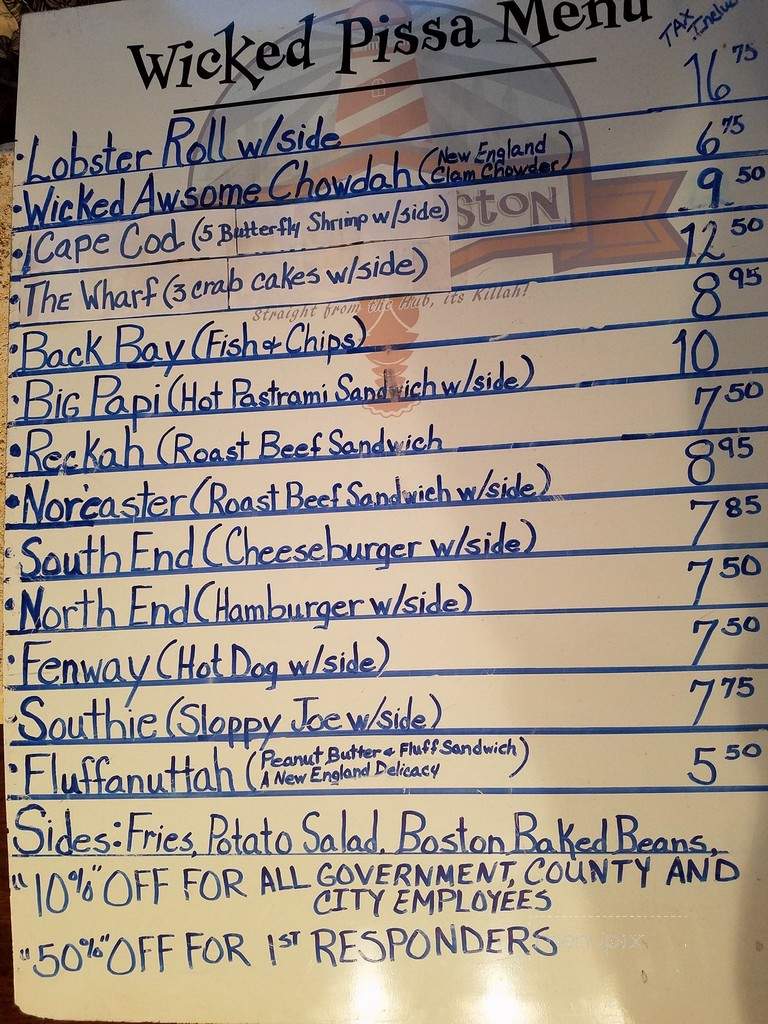 Wicked Pissa Menu
TAX
Lobster Roll w/side 16 75
Wicked Awsome Chowdah (New England Clam Chowder) 6 75
Cape Cod (5 Butterfly Shrimp w/side) 9 50
The Wharf (3 crab cakes w/side) 12 50
Straight from the Hub, its Killah!
Back Bay (Fish & Chips) 8 95
Big Papi (Hot Pastrami Sandwich w/side) 10
Reckah (Roast Beef Sandwich 7 50
Nor'easter (Roast Beef Sandwich w/side) 8 95
South End (Cheeseburger w/side) 7 85
North End (Hamburger w/side) 7 50
Fenway (Hot Dog w/side) 7 50
Southie (Sloppy Joe w/side) 7 75
Fluffanuttah (Peanut Butter & Fluff Sandwich A New England Delicacy) 5 50
Sides: Fries, Potato Salad, Boston Baked Beans,
"10%" OFF FOR ALL GOVERNMENT, COUNTY AND
CITY EMPLOYEES
"50%" OFF FOR 1ST RESPONDERS